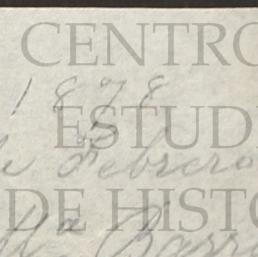 CENTRO
1878
ESTUD
de Febrero
DE HISTO
Ma Barr